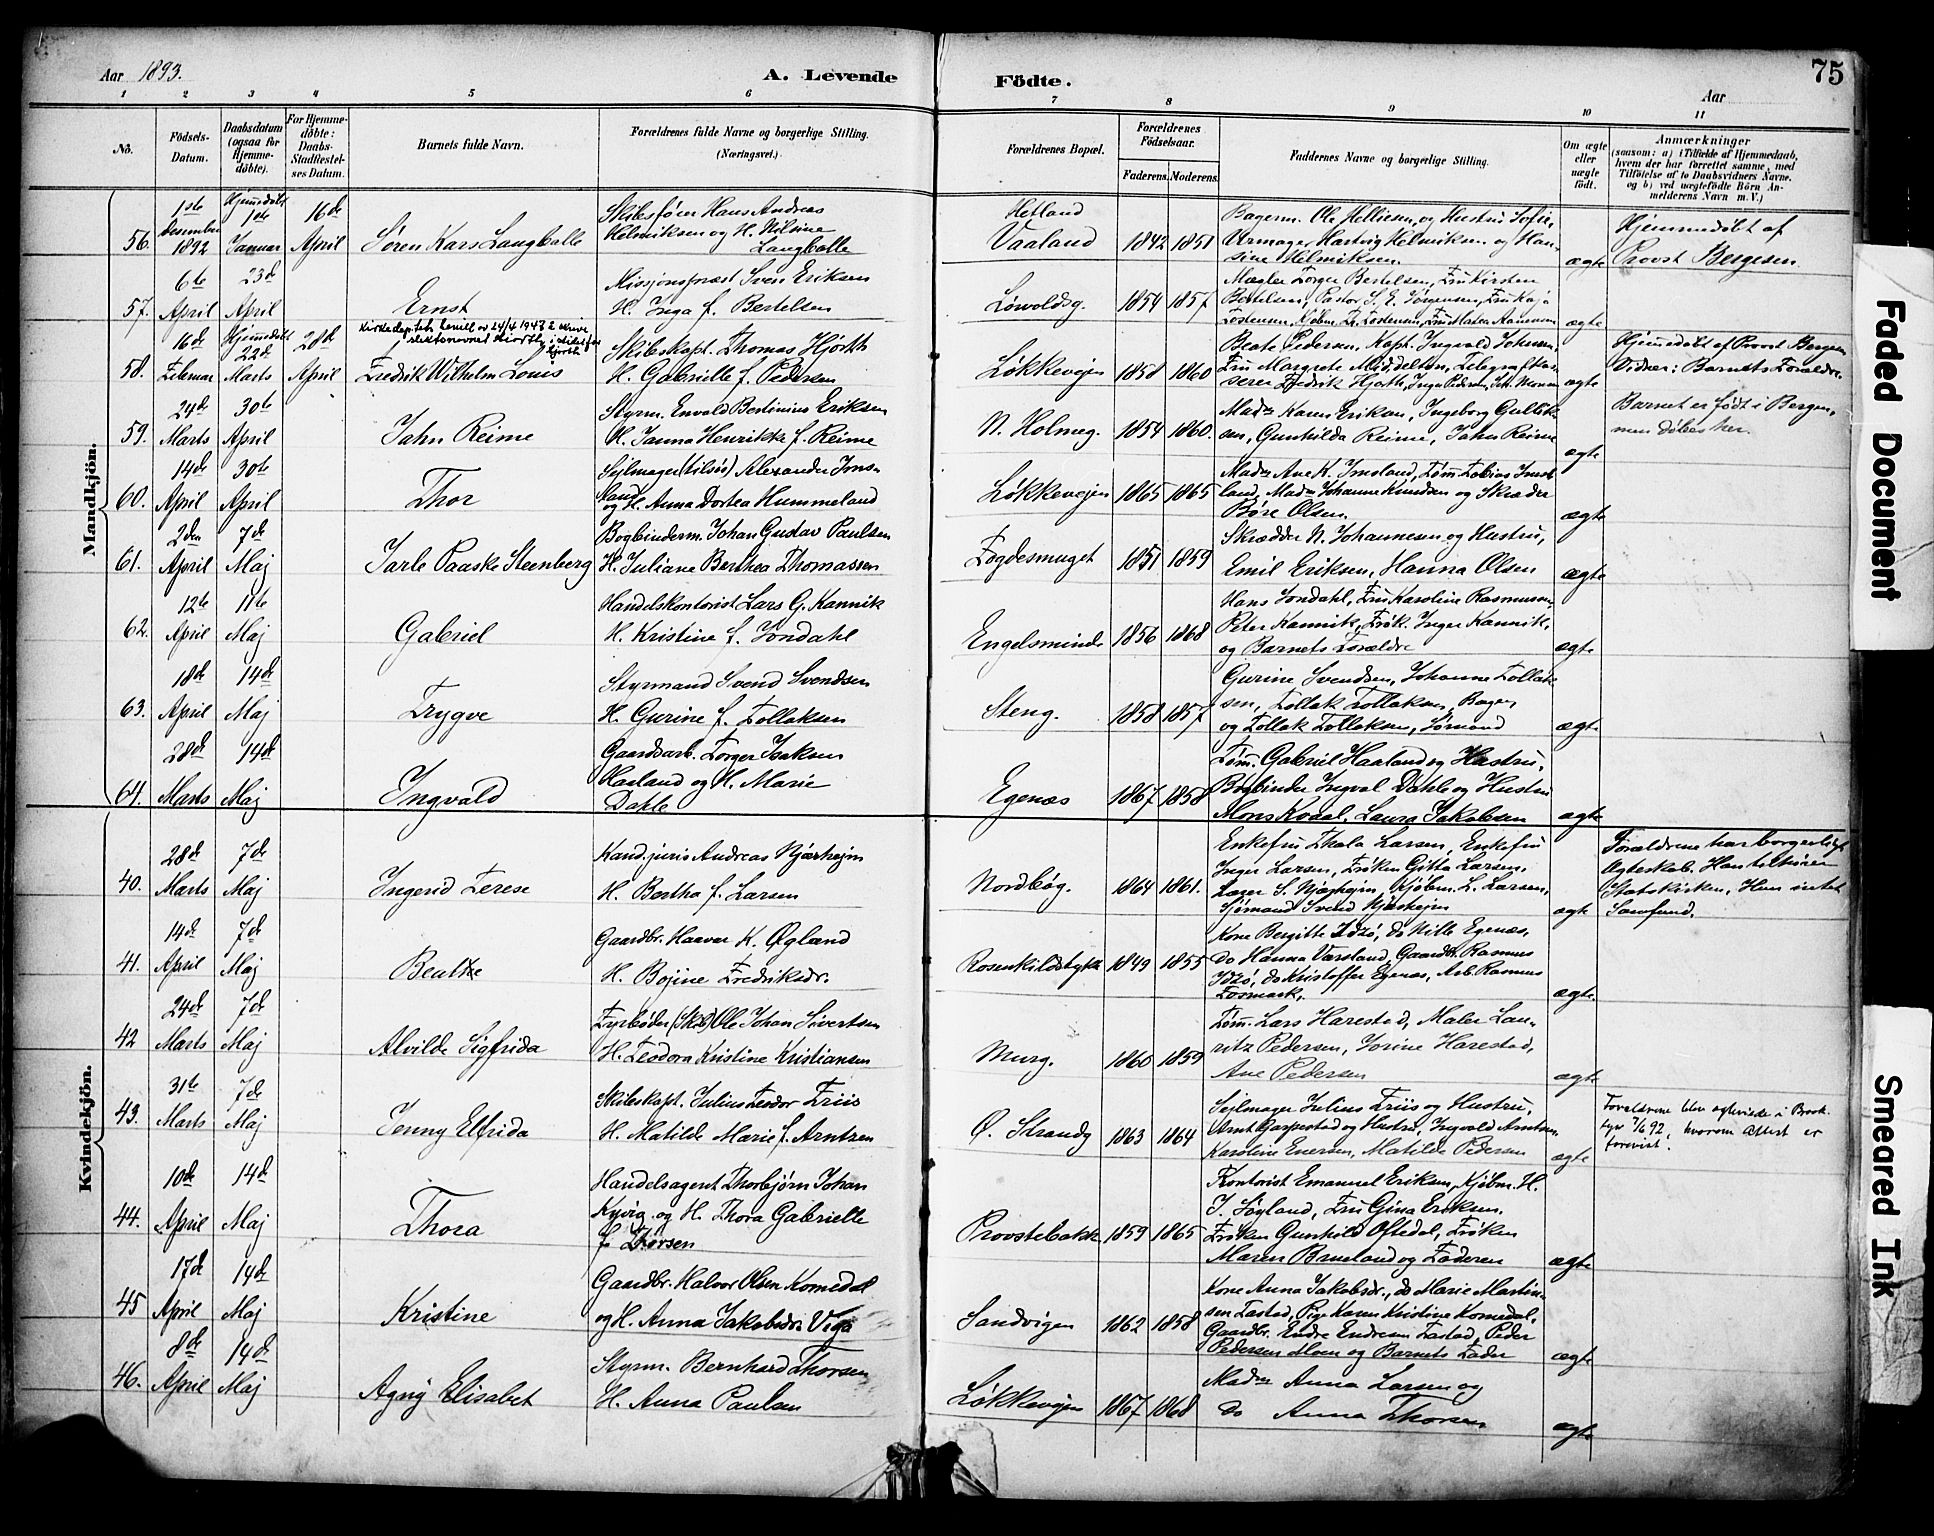 Aar 1893.
A. Levende Födte.
Aar
75
1 2 3 4 5 6 7 8 9 10 11
Nö.
Födsels-Datum.
Daabsdatum (ogsaa for Hjemmedøbte).
For Hjemmedøbte: Daabs-Stadfæstelses Datum.
Barnets fulde Navn.
Forældrenes fulde Navne og borgerlige Stilling. (Næringsvei.)
Forældrenes Bopæl.
Forældrenes Födselsaar.
Faderens. Moderens.
Faddernes Navne og borgerlige Stilling.
Om ægte eller uægte født.
Anmærkninger
(saasom: a) i Tilfælde af Hjemmedaab, hvem der har forrettet samme, med Tilföielse af to Daabsvidners Navne, og b) ved uægtefödte Börn Anmelderens Navn m. V.)
Mandkjön.
56. 1ste Desember 1892 Hjemmedøbt 1ste Januar 16de April Søren Kars Langballe
Skibsfører Hans Andreas
Helmiksen og H. Nilsine
Langballe
Hetland
Vaaland 1842 1851
Bagerm. Ole Helliesen og Hustru Sofie,
Urmager Hartvig Helmiksen og Han-
sine Helmiksen. ægte
Hjemmedøbt af
Provst Bergesen
57. 6te April 23de April Ernst
Missjonsprest Sven Eriksen
H. Inga f. Bertelsen
Løvoldsg. 1854 1857
Mægler Torger Bertelsen, Fru Kirsten
Bertelsen, Pastor S. E. Jørgensen, Fru Kaja
ægte
58. 16de Februar Hjemmedøbt 22de Marts 28de April
Fredrik Wilhelm Louis
Skibskapt. Thomas Hjorth
H. Gabrielle f. Pedersen
Løkkevejen 1858 1860
Beate Pedersen, Kapt. Ingvald Johnsen,
Fru Margrete Middelton, Telegrafkas-
serer Fredrik Hjorth, Inga Pedersen,
ægte
Hjemmedøbt af Provst Bergesen
Vidner: Barnets Forældre.
59. 24de Marts 30te April Jahn Reime
Styrm. Envald Bertinius Eriksen
H. Janna Henrikke f. Reime
N. Holmeg. 1854 1860.
Madm Karen Eriksen, Ingeborg Gabriel-
sen, Gunhilda Reime, Jahn Reime
ægte
Barnet er født i Bergen,
men døbes her.
60. 14de April 30te April Thor
Sejlmager (tilsøs) Alexander Ims-
land og H. Anna Dortea Hummeland
Løkkevejen 1865 1865
Madm Ane K. Imsland, Tøm. Tobias Ims-
land, Madm Johanne Knudsen og Skræder
Børe Olsen. ægte
61. 2den April 7de Maj Jarle Paaske Steenberg
Bogbinderm. Johan Gustav Paulsen
H. Juliane Berthea Thomassen
Fogdesmuget 1851 1859
Skrædder N. Johannesen og Hustru,
Emil Eriksen, Hanna Olsen ægte
62. 12te April 11te Maj Gabriel
Handelskontorist Lars G. Kannik
H. Kristine f. Jondahl
Engelsminde 1856 1868
Hans Jondahl, Fru Karoline Rasmussen,
Peter Kannik, Frøk. Inger Kannik,
og Barnets Forældre ægte
63. 18de April 14de Maj Trygve
Styrmand Svend Svendsen
H. Gurine f. Tollaksen
Steng. 1858 1857
Gurine Svendsen, Johanne Tollak-
sen, Tollak Tollaksen, Bager,
og Tollak Tollaksen, Sømand ægte
64. 28de Marts 14de Maj Ingvald
Gaardsarb. Torger Isaksen
Haaland og H. Marie
Dahle
Egenæs 1867 1858
Tøm. Gabriel Haaland og Hustru,
Bogbinder Ingval Dahle og Hustru
Mons Kvaal, Laura Jakobsen ægte
Kvindekjön.
40. 28de Marts 7de Maj Ingerid Terese
Kand. juris Andreas Njærhejm
H. Bertha f. Larsen
Nordbøg. 1864 1861.
Enkefru Thala Larsen, Enkefru
Inger Larsen, Frøken Gitta Larsen,
Lager S. Njærhejm, Kjøbm. L. Larsen,
Sjømand Svend Njærhejm ægte
Forældrene har borgerligt
Ægteskab. Han tilhører
Statskirken, Hun intet
Samfund.
41. 14de April 7de Maj Beathe
Gaardbr. Haavar K. Øgland
H. Bojine Fredriksdr.
Rosenkildebykk 1849 1855
Kone Bergitte Idsø, do Nille Egenæs,
Do Hanna Varland, Gaardbr. Rasmus
Idsø, do Kristoffer Egenæs, Arb. Rasmus
Fosmark. ægte.
42 24de Marts 7de Maj Alvilde Sigfrida
Fyrbøder (Skib) Ole Johan Sivertsen
H. Teodora Kristine Kristiansen
Murg. 1860 1859
Tøm. Lars Harestad, Maler Lau-
ritz Pedersen, Jorine Harestad,
Ane Pedersen ægte
43. 31te Marts 7de Maj Jenny Elfrida
Skibskapt. Julius Teodor Friis
H. Matilde Marie f. Arntzen
Ø. Strandg 1863 1864
Sejlmager Julius Friis og Hustru,
Arnt Gaspestad og Hustru, Ingvald Arntsen,
Karoline Enersen, Matilde Pedersen ægte
Forældrene blev ægteviede i Brook-
lyn 7/6 92, hvorom Attest er
forevist.
44. 10de April 14de Maj Thora
Handelsagent Thorbjørn Johan
Kyvig og H. Thora Gabrielle
f. Thorsen
Provstebakk 1859 1865
Kontorist Emanuel Eriksen, Kjøbm. H.
J. Søyland, Fru Gina Eriksen,
Frøken Gunhild Oftedal, Frøken
Maren Brueland og Faderen ægte
45 17de April 14de Maj Kristine
Gaardbr. Halvor Olsen Komedal
og H. Anna Jakobsdr. Viga
Sandvigen 1862 1858
Kone Anna Jakobsdr., do Marie Martin-
sen Tastad, Pige Karen Kristine Komedal,
Gaardbr. Endre Endresen Tastad, Peder
Pedersen Moen og Barnets Fader ægte
46. 8de April 14de Maj Agny Elisabet
Styrm. Bernhard Thorsen
H. Anna Paulsen
Løkkevejen 1867 1868
Madm Anna Larsen og
Do Anna Thorsen ægte
Faded Document
Smeared Ink